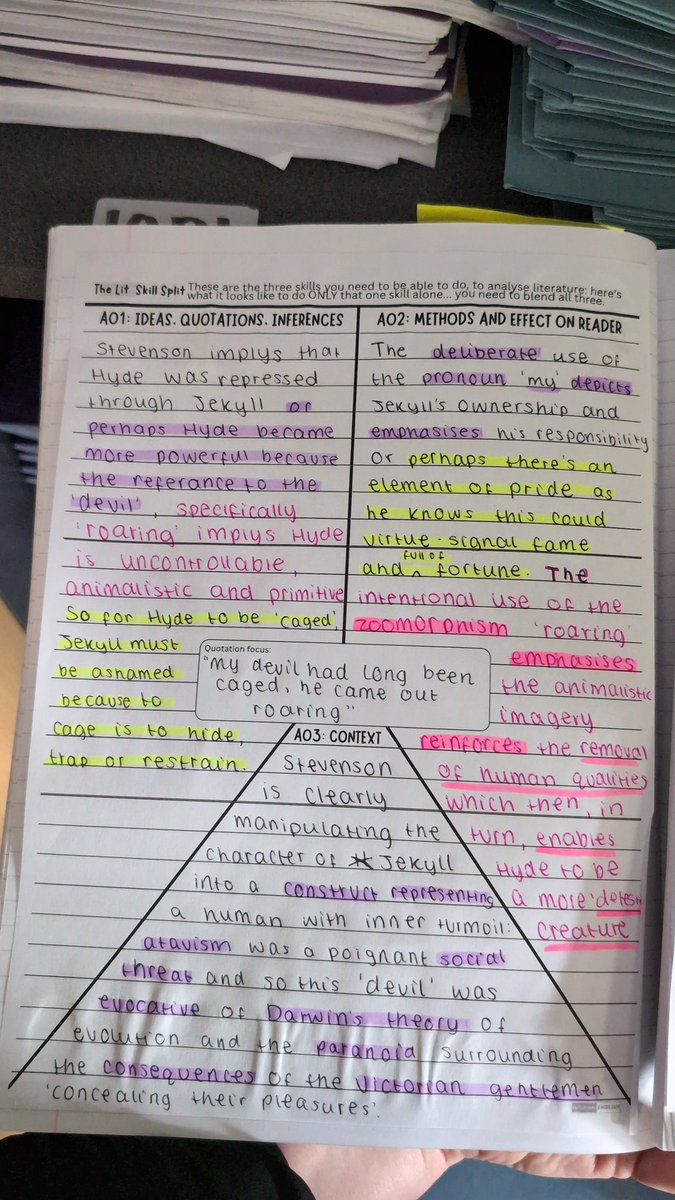 The Lit Skill Split These are the three skills you need to be able to do, to analyse literature: here's
what it looks like to do ONLY that one skill alone... you need to blend all three.
AO1: IDEAS, QUOTATIONS, INFERENCES
Stevenson implys that
Hyde was repressed
through Jekyll or
perhaps Hyde became
more powerful because
the referance to the
'devil', specifically
'roaring' implys Hyde
is uncontrollable,
animalistic and primitive
so for Hyde to be 'caged',
Jekyll must
be ashamed
because to
cage is to hide,
trap or restrain.
AO2: METHODS AND EFFECT ON READER
The deliberate use of
the pronoun 'my' depicts
Jekyll's ownership and
emphasises his responsibility
or perhaps there's an
element of pride as
he knows this could
virtue-signal fame
full of
and ^ fortune. The
intentional use of the
zoomorpnism 'roaring'
emphasises
the animalistic
imagery
reinforces the removal
of human qualities
which then, in
turn, enables
Hyde to be
a more 'detest
creature
Quotation focus:
"my devil had long been
caged, he came out
roaring"
AO3: CONTEXT
Stevenson
is clearly
manipulating the
character of Jekyll
into a construct representing
a human with inner turmoil:
atavism was a poignant social
threat and so this 'devil' was
evocative of Darwin's theory of
evolution and the paranoid surrounding
the consequences of the Victorian gentlemen
'concealing their pleasures'.